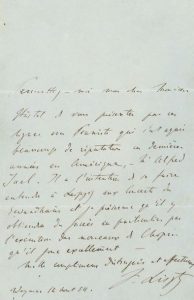 Permettez-moi mon cher Monsieur
de vous présenter par ces
lignes un Pianiste qui s'est acquis
beaucoup de réputation en dernières
années en Amérique, – Mr Alfred
Jaell. Il a l'intention de se faire
entendre à Leipzig aux concerts du
Gewandhaus et je présume qu'il y
obtiendra du succès en particulier par
l'exécution des morceaux de Chopin
qu'il joue excellemment –
mille compliments distingués et affectueux
F. Liszt
54.